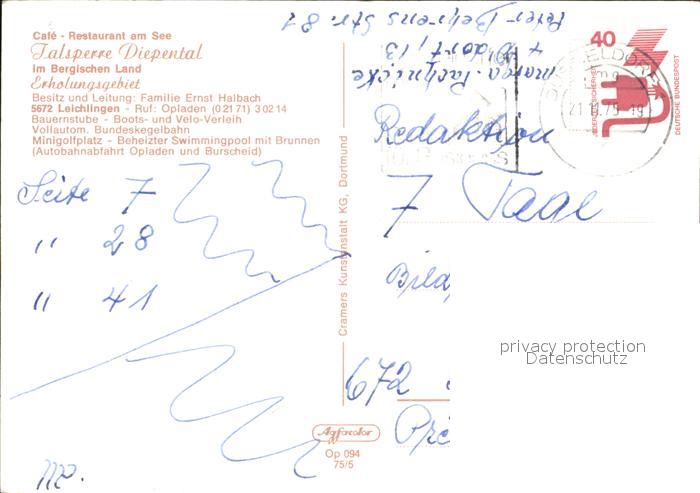 Café - Restaurant am See
Talsperre Diepental
im Bergischen Land
Erholungsgebiet
Besitz und Leitung: Familie Ernst Halbach
5672 Leichlingen - Ruf: Opladen (02171) 30214
Bauernstube - Boots- und Velo-Verleih
Vollautom. Bundeskegelbahn
Minigolfplatz - Beheizter Swimmingpool mit Brunnen
(Autobahnabfahrt Opladen und Burscheid)
Seite 7
" 28
" 41
Cramers Kunstanstalt KG, Dortmund
Agfacolor
Op 094
75/5
Peter Behrens Str. 87
40
DEUTSCHE BUNDESPOST
Redaktion
7 Tage
Bild
672
privacy protection
Datenschutz